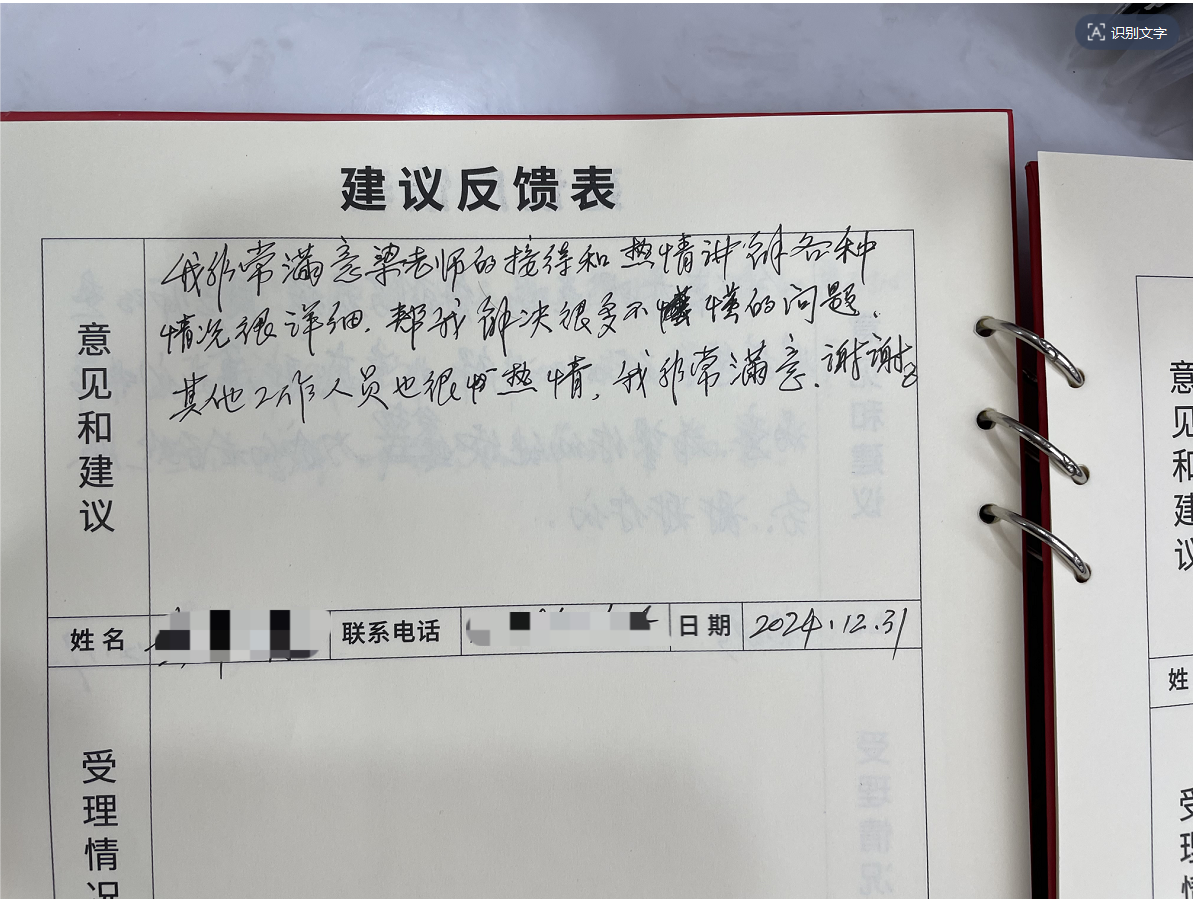 识别文字
建议反馈表
意见和建议
我非常满意梁老师的接待和热情讲解各种
情况很详细.帮我解决很多不懂的问题.
其他工作人员也很热情,我非常满意.谢谢
姓名
联系电话
日期
2024.12.31
受理情况
意见和建议
姓
受理情